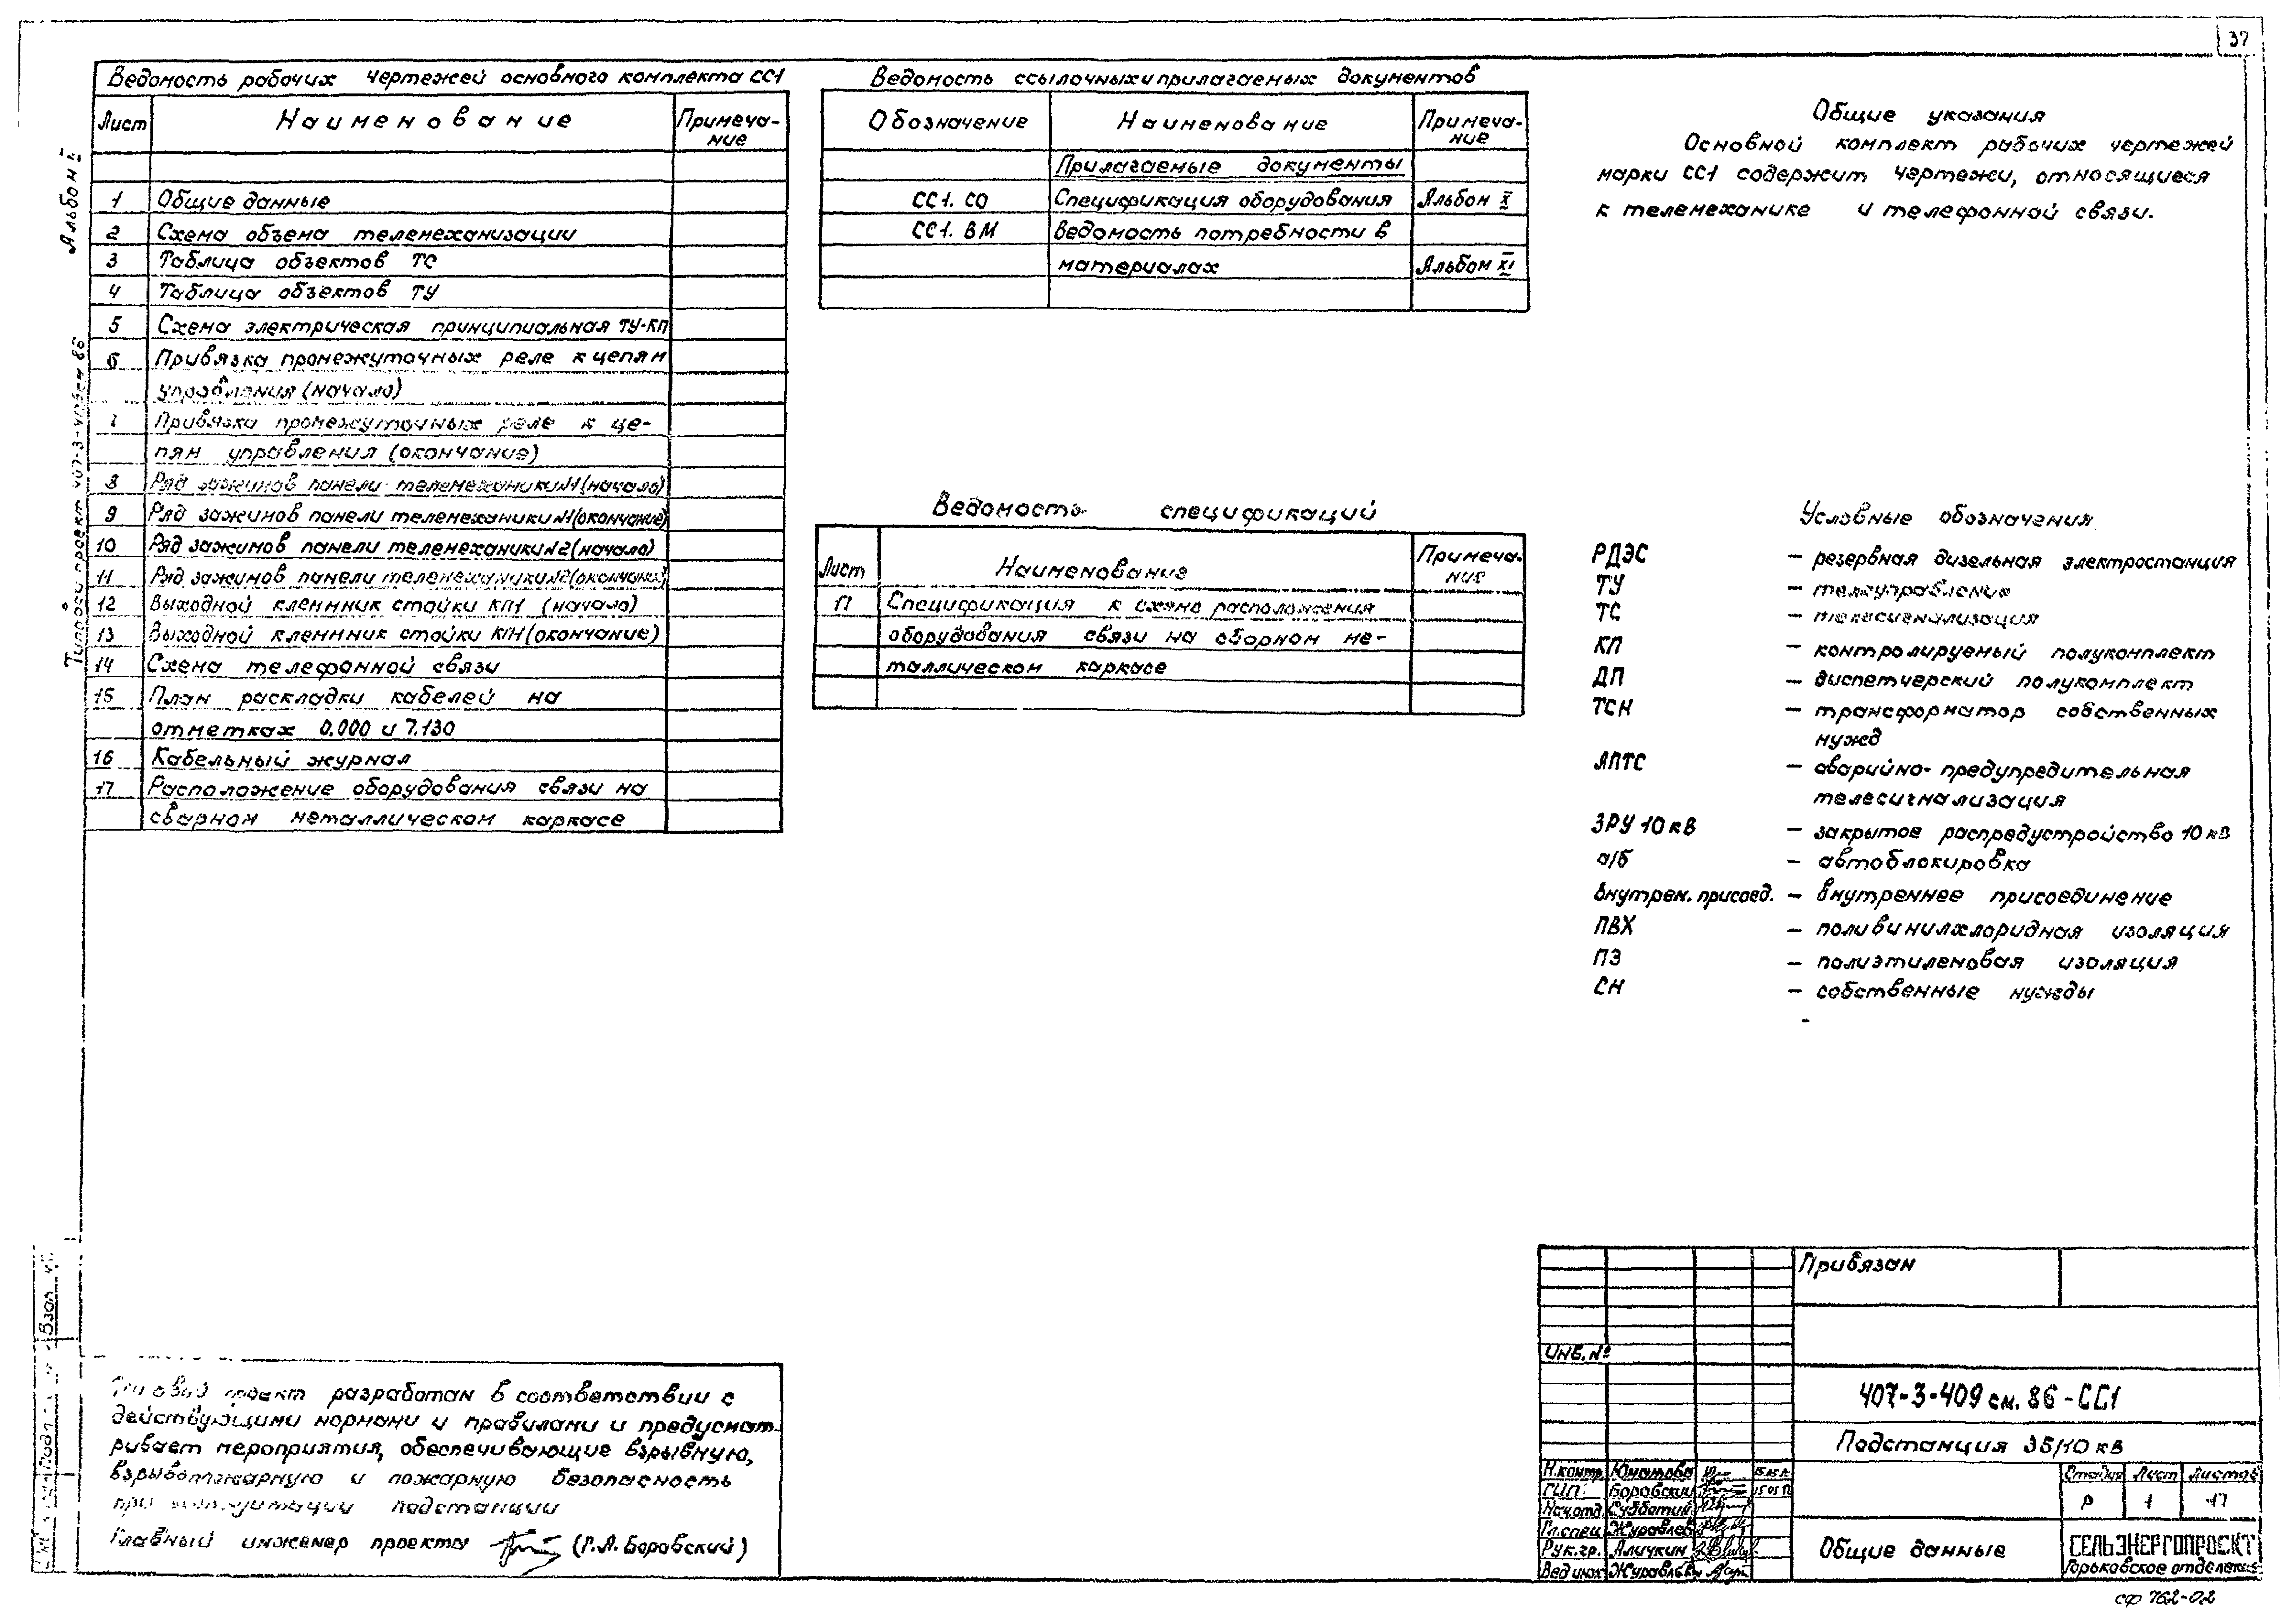 37
Альбом I
Типовой проект 407-3-409см 86
Ведомость рабочих чертежей основного комплекта СС1
Лист Наименование Примеча-
ние
1 Общие данные
2 Схема объема телемеханизации
3 Таблица объектов ТС
4 Таблица объектов ТУ
5 Схема электрическая принципиальная ТУ-КП
6 Привязка промежуточных реле к цепям
управления (начало)
7 Привязка промежуточных реле к це-
пям управления (окончание)
8 Ряд зажимов панели телемеханики №1 (начало)
9 Ряд зажимов панели телемеханики №1 (окончание)
10 Ряд зажимов панели телемеханики №2 (начало)
11 Ряд зажимов панели телемеханики №2 (окончание)
12 Выходной клеммник стойки КП1 (начало)
13 Выходной клеммник стойки КП1 (окончание)
14 Схема телефонной связи
15 План раскладки кабелей на
отметках 0.000 и 7.130
16 Кабельный журнал
17 Расположение оборудования связи на
сварном металлическом каркасе
Ведомость ссылочных и прилагаемых документов
Обозначение Наименование Примеча-
ние
Прилагаемые документы
СС1. СО Спецификация оборудования Альбом X
СС1. ВМ Ведомость потребности в
материалах Альбом XI
Ведомость спецификаций
Лист Наименование Примеча-
ние
17 Спецификация к схеме расположения
оборудования связи на сварном ме-
таллическом каркасе
Общие указания
Основной комплект рабочих чертежей
марки СС1 содержит чертежи, относящиеся
к телемеханике и телефонной связи.
Условные обозначения
РДЭС – резервная дизельная электростанция
ТУ – телеуправление
ТС – телесигнализация
КП – контролируемый полукомплект
ДП – диспетчерский полукомплект
ТСН – трансформатор собственных
нужд
АПТС – аварийно-предупредительная
телесигнализация
ЗРУ 10 кВ – закрытое распредустройство 10 кВ
а/б – автоблокировка
Внутрен. присоед. – внутреннее присоединение
ПВХ – поливинилхлоридная изоляция
ПЭ – полиэтиленовая изоляция
СН – собственные нужды
Типовой проект разработан в соответствии с
действующими нормами и правилами и предусмат-
ривает мероприятия, обеспечивающие взрывную,
взрывопожарную и пожарную безопасность
при эксплуатации подстанции
Главный инженер проекта (Г.А. Боровский)
Взам.
Подп.
Привязан
Инв. №
407-3-409 см. 86 - СС1
Подстанция 35/10 кВ
Н.контр. Юматова
ГИП Боровский
Нач.отд. Субботин
Гл.спец. Журавлев
Рук.гр. Аличкин
Вед инж Журавлев
Стадия Лист Листов
Р 1 17
Общие данные
СЕЛЬЭНЕРГОПРОЕКТ
Горьковское отделение
сф 762-02